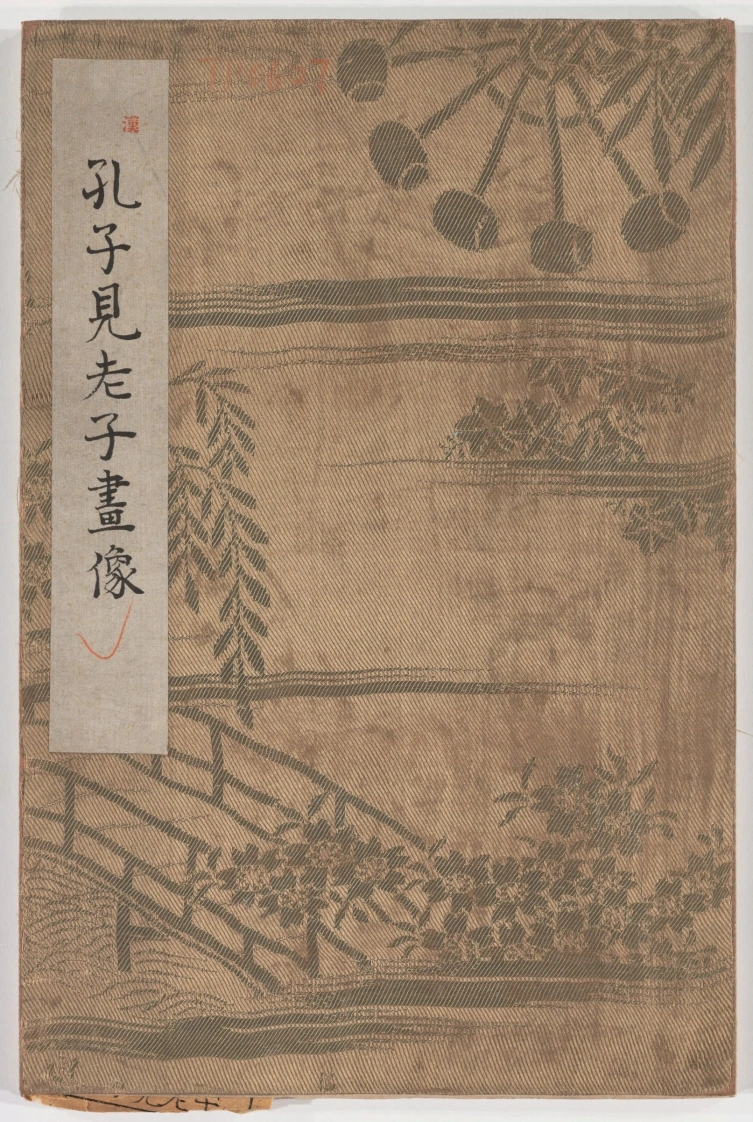 漢
孔子見老子畫像